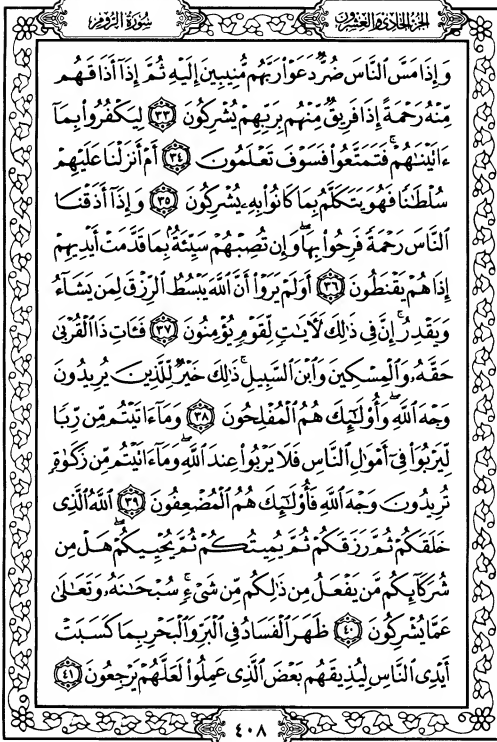 الجزء الحادي والعشرون سورة الروم
وَإِذَا مَسَّ ٱلنَّاسَ ضُرٌّ دَعَوْا۟ رَبَّهُم مُّنِيبِينَ إِلَيْهِ ثُمَّ إِذَآ أَذَاقَهُم
مِّنْهُ رَحْمَةً إِذَا فَرِيقٌ مِّنْهُم بِرَبِّهِمْ يُشْرِكُونَ ٣٣ لِيَكْفُرُوا۟ بِمَآ
ءَاتَيْنَٰهُمْ ۚ فَتَمَتَّعُوا۟ فَسَوْفَ تَعْلَمُونَ ٣٤ أَمْ أَنزَلْنَا عَلَيْهِمْ
سُلْطَٰنًا فَهُوَ يَتَكَلَّمُ بِمَا كَانُوا۟ بِهِۦ يُشْرِكُونَ ٣٥ وَإِذَآ أَذَقْنَا
ٱلنَّاسَ رَحْمَةً فَرِحُوا۟ بِهَا ۖ وَإِن تُصِبْهُمْ سَيِّئَةٌۢ بِمَا قَدَّمَتْ أَيْدِيهِمْ
إِذَا هُمْ يَقْنَطُونَ ٣٦ أَوَلَمْ يَرَوْا۟ أَنَّ ٱللَّهَ يَبْسُطُ ٱلرِّزْقَ لِمَن يَشَآءُ
وَيَقْدِرُ ۚ إِنَّ فِى ذَٰلِكَ لَءَايَٰتٍ لِّقَوْمٍ يُؤْمِنُونَ ٣٧ فَـَٔاتِ ذَا ٱلْقُرْبَىٰ
حَقَّهُۥ وَٱلْمِسْكِينَ وَٱبْنَ ٱلسَّبِيلِ ۚ ذَٰلِكَ خَيْرٌ لِّلَّذِينَ يُرِيدُونَ
وَجْهَ ٱللَّهِ ۖ وَأُو۟لَٰٓئِكَ هُمُ ٱلْمُفْلِحُونَ ٣٨ وَمَآ ءَاتَيْتُم مِّن رِّبًا
لِّيَرْبُوَا۟ فِىٓ أَمْوَٰلِ ٱلنَّاسِ فَلَا يَرْبُوا۟ عِندَ ٱللَّهِ ۖ وَمَآ ءَاتَيْتُم مِّن زَكَوٰةٍ
تُرِيدُونَ وَجْهَ ٱللَّهِ فَأُو۟لَٰٓئِكَ هُمُ ٱلْمُضْعِفُونَ ٣٩ ٱللَّهُ ٱلَّذِى
خَلَقَكُمْ ثُمَّ رَزَقَكُمْ ثُمَّ يُمِيتُكُمْ ثُمَّ يُحْيِيكُمْ ۖ هَلْ مِن
شُرَكَآئِكُم مَّن يَفْعَلُ مِن ذَٰلِكُم مِّن شَىْءٍ ۚ سُبْحَٰنَهُۥ وَتَعَٰلَىٰ
عَمَّا يُشْرِكُونَ ٤٠ ظَهَرَ ٱلْفَسَادُ فِى ٱلْبَرِّ وَٱلْبَحْرِ بِمَا كَسَبَتْ
أَيْدِى ٱلنَّاسِ لِيُذِيقَهُم بَعْضَ ٱلَّذِى عَمِلُوا۟ لَعَلَّهُمْ يَرْجِعُونَ ٤١
٤٠٨